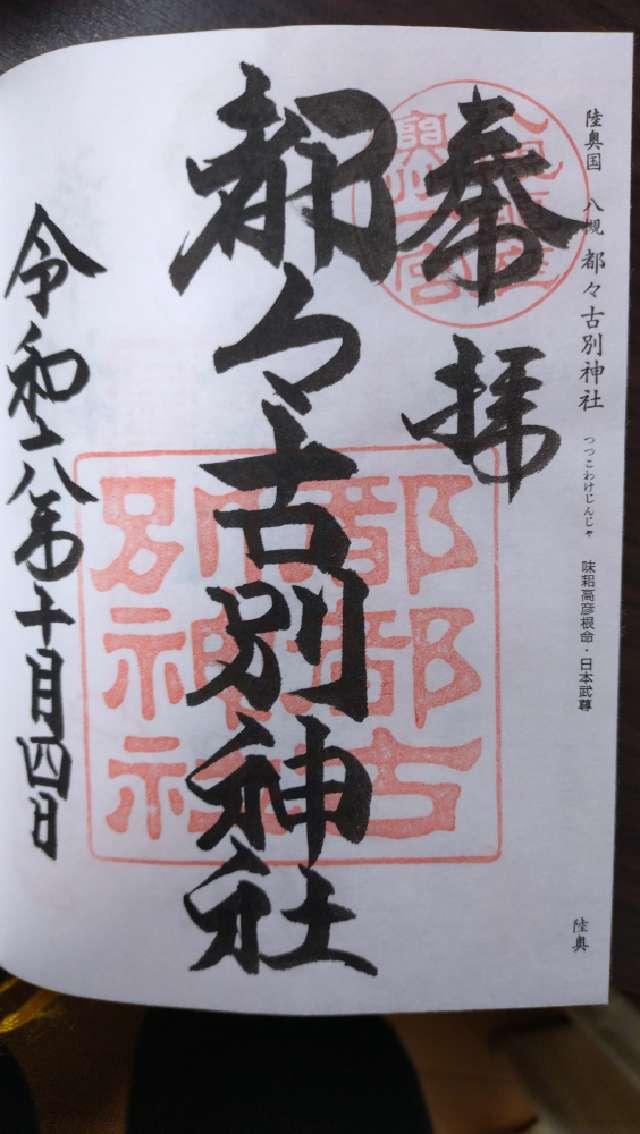 陸奥国 八槻 都々古別神社 つつこわけじんじゃ 味耜高彦根命・日本武尊
陸奥
奉拝
都々古別神社
都都古別神社
令和六年十月四日